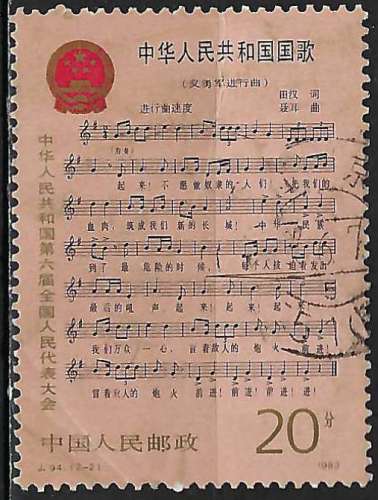 中华人民共和国国歌
(义勇军进行曲)
田汉 词
进行曲速度 聂耳 曲
(前奏)
起来!不愿做奴隶的人们!把我们的
血肉,筑成我们新的长城!中华民族
到了最危险的时候,每个人被迫着发出
最后的吼声 起来!起来!起
我们万众一心,冒着敌人的炮火前进!
冒着敌人的炮火前进!前进!前进!进!
中华人民共和国第六届全国人民代表大会
20分
中国人民邮政
J.94.(2-2) 1983